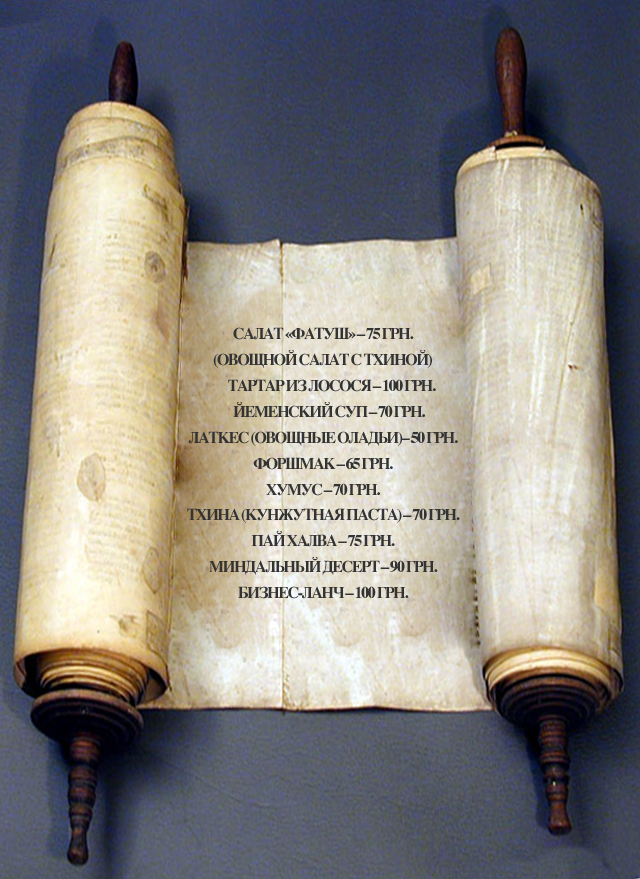 САЛАТ «ФАТУШ» – 75 ГРН.
(ОВОЩНОЙ САЛАТ С ТХИНОЙ)
ТАРТАР ИЗ ЛОСОСЯ – 100 ГРН.
ЙЕМЕНСКИЙ СУП – 70 ГРН.
ЛАТКЕС (ОВОЩНЫЕ ОЛАДЬИ)– 50 ГРН.
ФОРШМАК – 65 ГРН.
ХУМУС – 70 ГРН.
ТХИНА (КУНЖУТНАЯ ПАСТА) – 70 ГРН.
ПАЙ ХАЛВА – 75 ГРН.
МИНДАЛЬНЫЙ ДЕСЕРТ – 90 ГРН.
БИЗНЕС-ЛАНЧ – 100 ГРН.